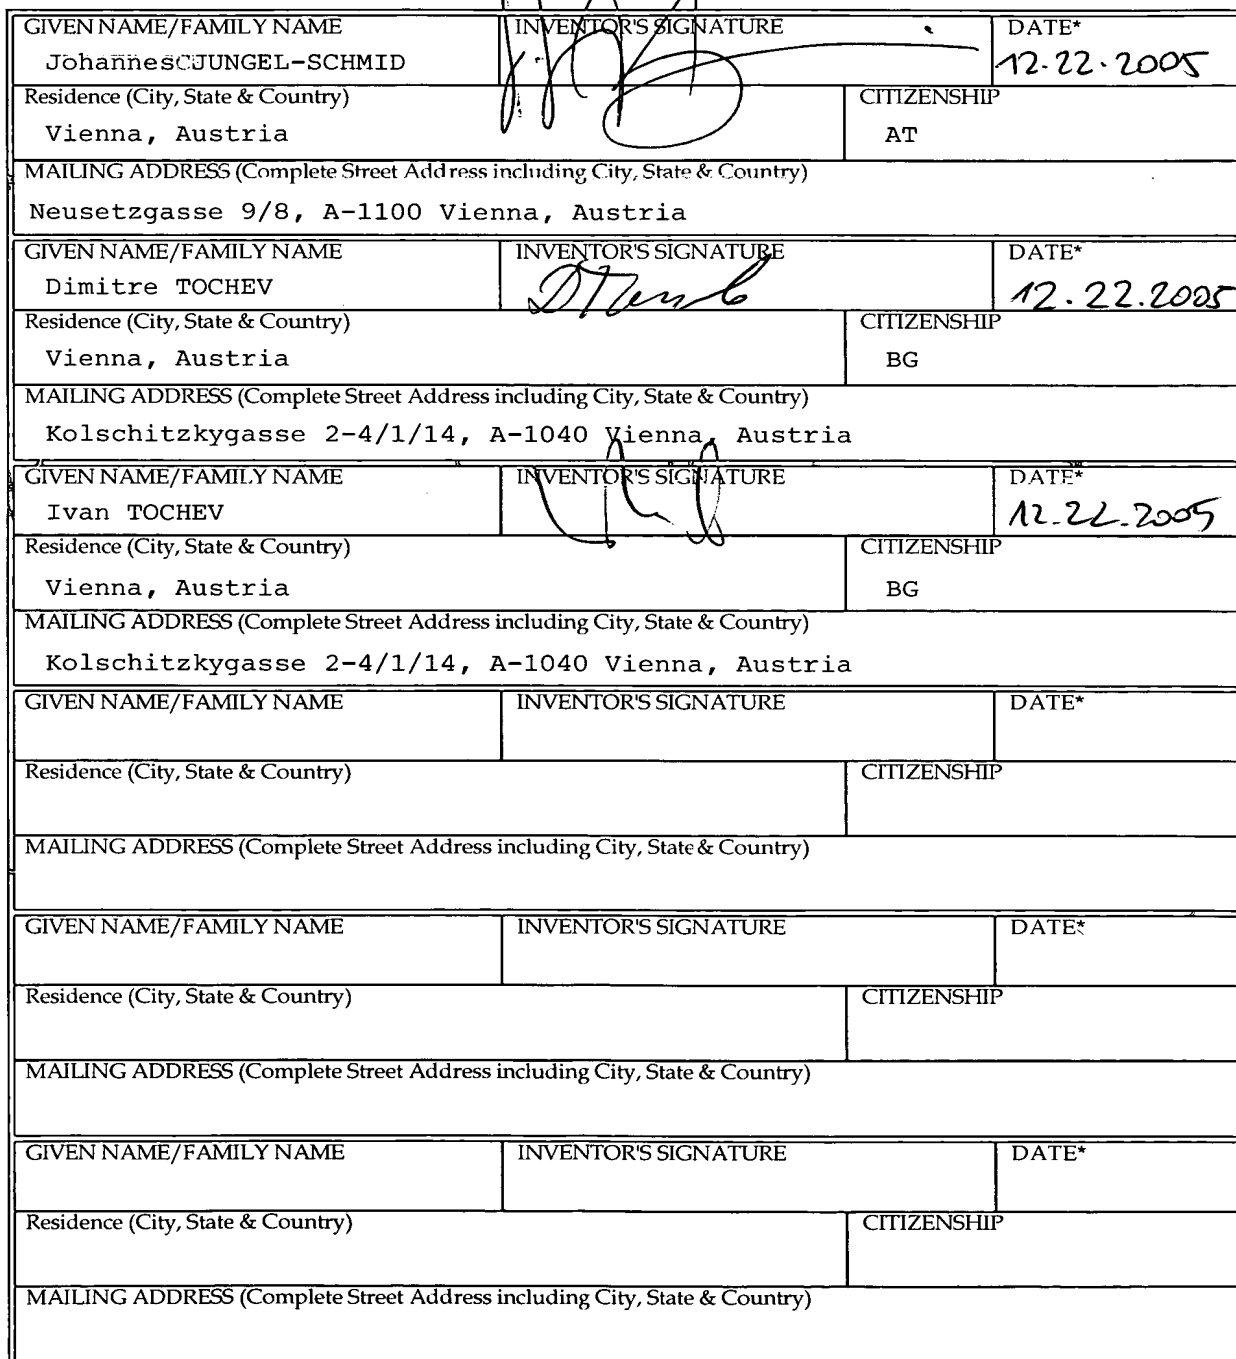 GIVEN NAME/FAMILY NAME INVENTOR'S SIGNATURE DATE*
Johannes JUNGEL-SCHMID 12.22.2005
Residence (City, State & Country) CITIZENSHIP
Vienna, Austria AT
MAILING ADDRESS (Complete Street Address including City, State & Country)
Neusetzgasse 9/8, A-1100 Vienna, Austria
GIVEN NAME/FAMILY NAME INVENTOR'S SIGNATURE DATE*
Dimitre TOCHEV 12.22.2005
Residence (City, State & Country) CITIZENSHIP
Vienna, Austria BG
MAILING ADDRESS (Complete Street Address including City, State & Country)
Kolschitzkygasse 2-4/1/14, A-1040 Vienna, Austria
GIVEN NAME/FAMILY NAME INVENTOR'S SIGNATURE DATE*
Ivan TOCHEV 12.22.2005
Residence (City, State & Country) CITIZENSHIP
Vienna, Austria BG
MAILING ADDRESS (Complete Street Address including City, State & Country)
Kolschitzkygasse 2-4/1/14, A-1040 Vienna, Austria
GIVEN NAME/FAMILY NAME INVENTOR'S SIGNATURE DATE*
Residence (City, State & Country) CITIZENSHIP
MAILING ADDRESS (Complete Street Address including City, State & Country)
GIVEN NAME/FAMILY NAME INVENTOR'S SIGNATURE DATE*
Residence (City, State & Country) CITIZENSHIP
MAILING ADDRESS (Complete Street Address including City, State & Country)
GIVEN NAME/FAMILY NAME INVENTOR'S SIGNATURE DATE*
Residence (City, State & Country) CITIZENSHIP
MAILING ADDRESS (Complete Street Address including City, State & Country)